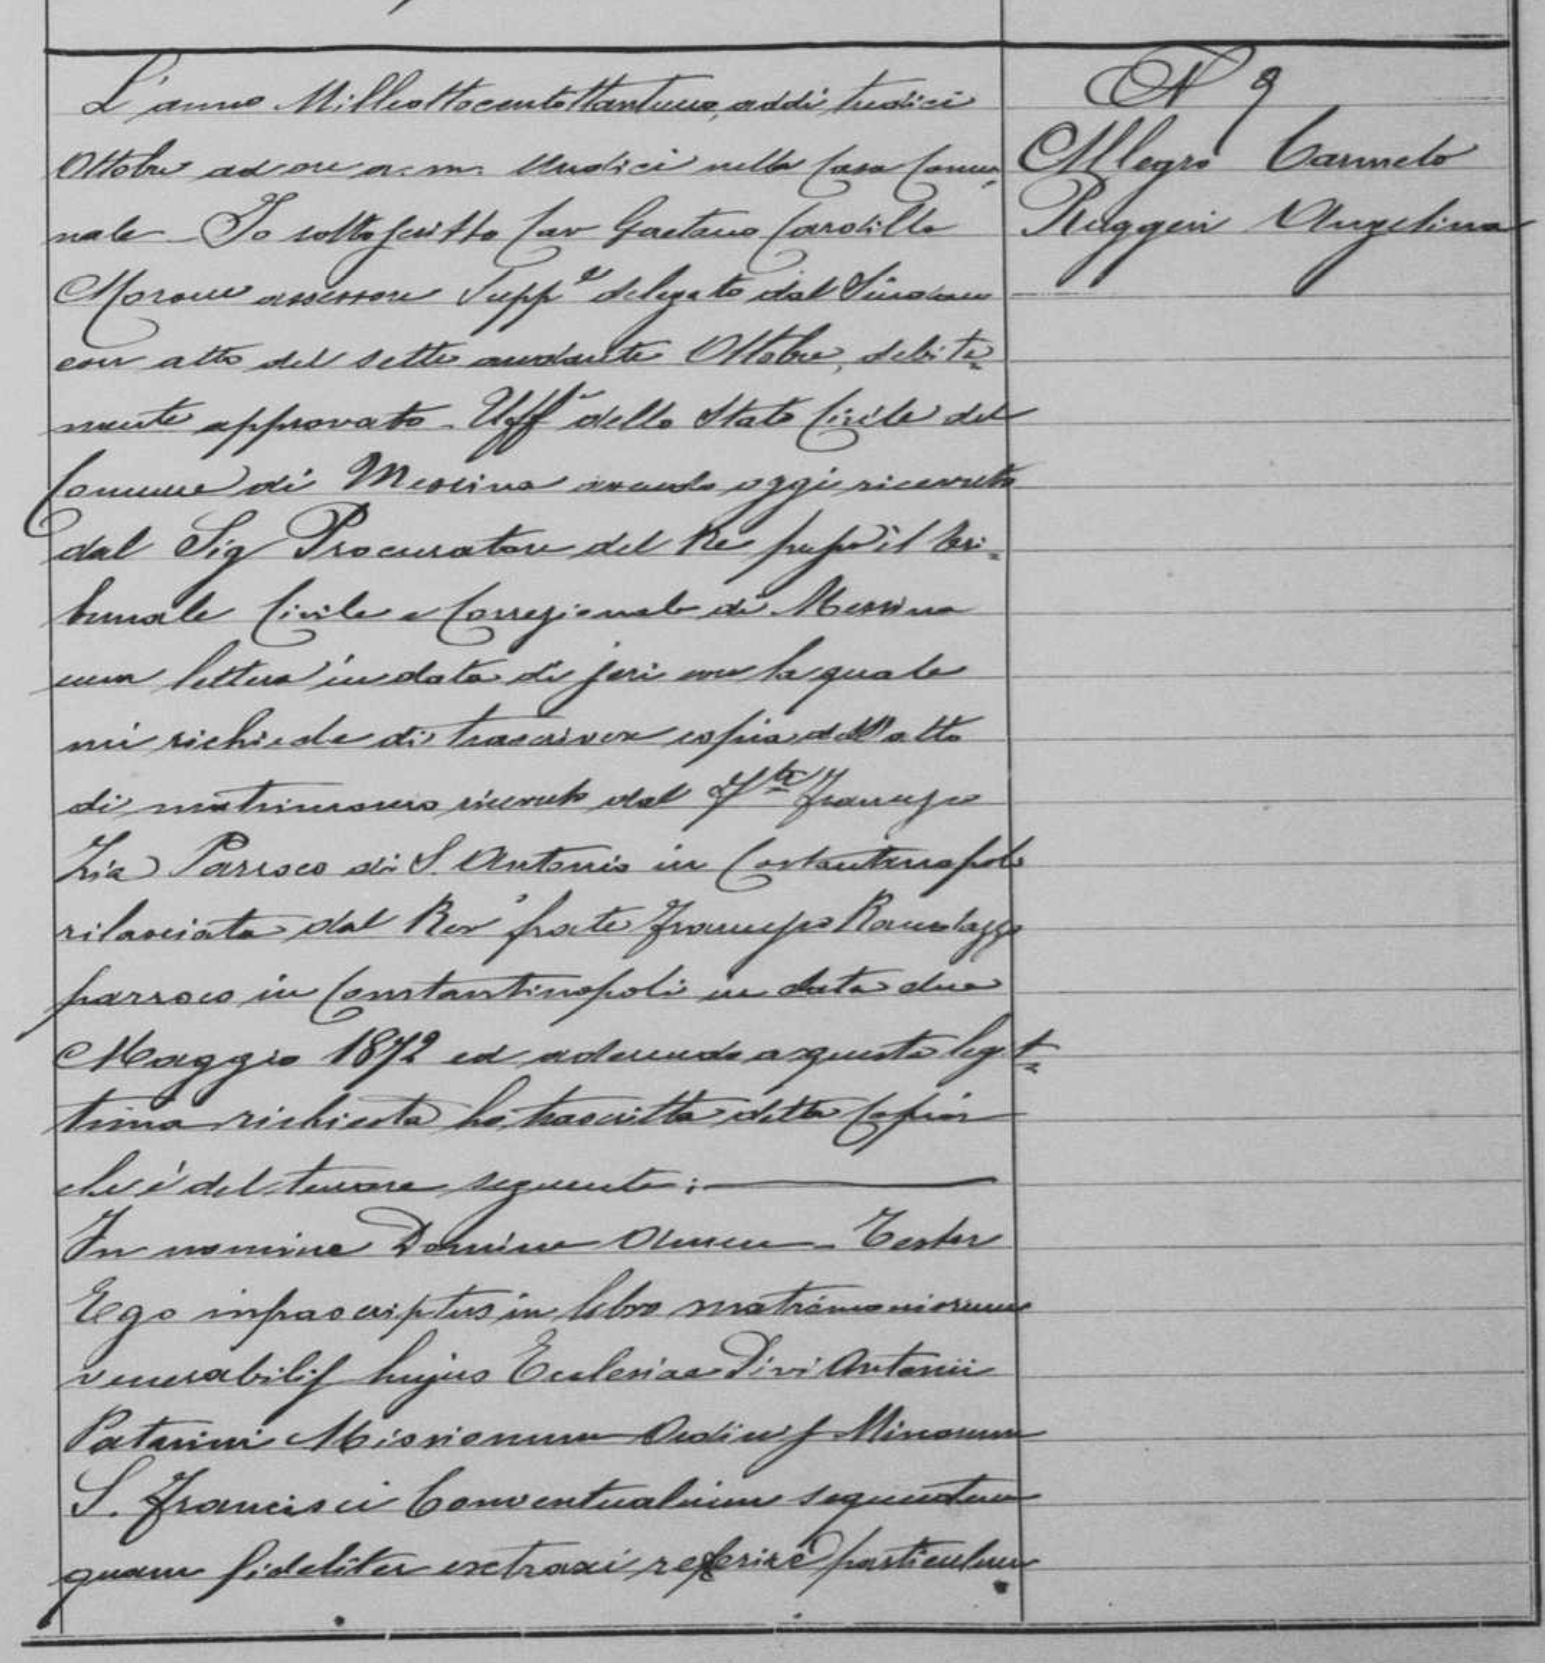 L'anno Milleottocentottantuno, addi tredici
Ottobre ad ore a.m. undici nella Casa Comu=
nale - Io sottoscritto Cav Gaetano Cardillo
assessore Suppe delegato dal Sindaco
con atto del sette andante Ottobre, debita=
mente approvato - Uffe dello Stato Civile del
Comune di Messina avendo oggi ricevuto
dal Sig Procuratore del Re presso il Tri=
bunale Civile e Correzionale di Messina
una lettera in data di jeri con la quale
mi richiede di trascrivere copia dell'atto
di matrimonio ricevuto dal Francesco
Parroco di S. Antonio in Costantinopoli
rilasciata dal Rev frate Francesco
parroco in Constantinopoli in data due
Maggio 1872 ed aderendo a questa legit=
tima richiesta ho trascritta detta Copia
che è del tenore seguente:
In nomine Domini Amen - Testor
Ego infrascriptus in libro matrimoniorum
venerabilis hujus Ecclesiae Divi Antonii
Patavini Missionum Ordinis Minorum
S. Francisci Conventualium sequentem
quam fideliter extraxi reperire particulam
N 9
Allegro Carmelo
Ruggeri Angelina